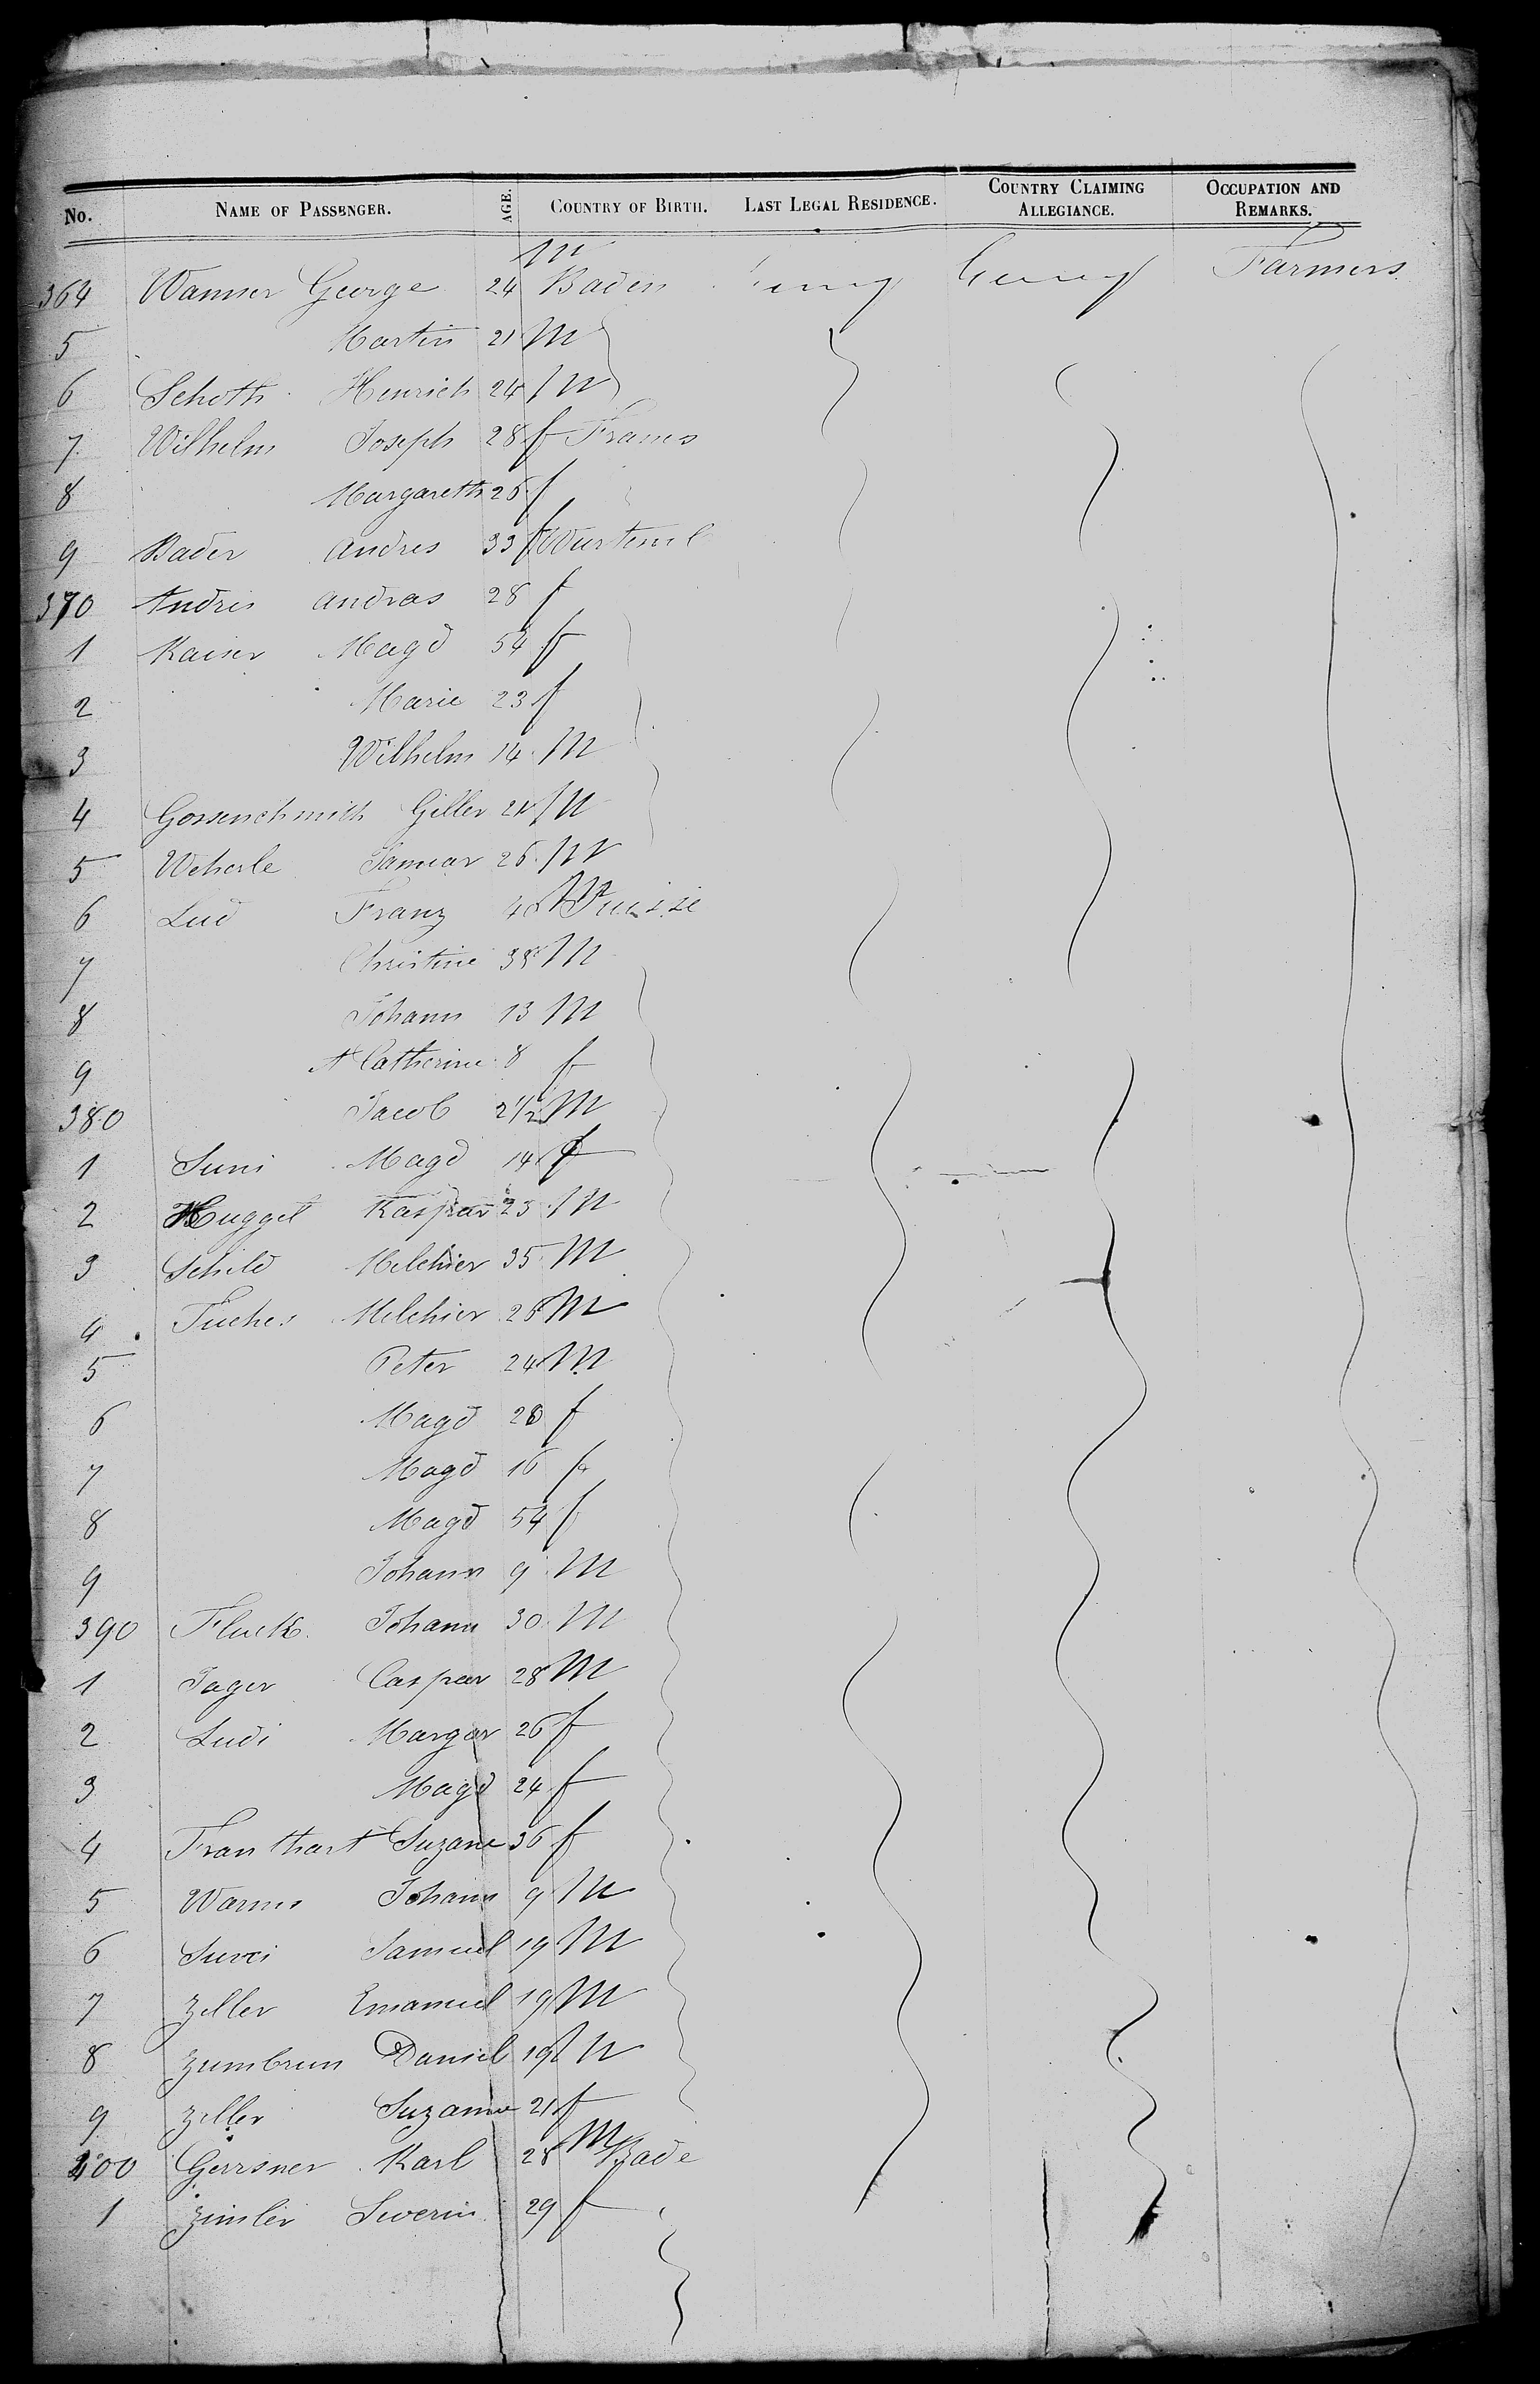 No. NAME OF PASSENGER. AGE. COUNTRY OF BIRTH. LAST LEGAL RESIDENCE. COUNTRY CLAIMING ALLEGIANCE. OCCUPATION AND REMARKS.
364 Wanner George 24 M Baden Farmers
5 Martin 21 M
6 Schoth Henrich 24 M
7 Wilhelm Joseph 28 f
8 Margareth 26 f
9 Bader Andres 33 f Wurtemb
370 Andris Andras 28 f
1 Kaiser Magd 54 f
2 Marie 23 f
3 Wilhelm 14 M
4 Giller M
5 Weherle 26 M
6 Lud Franz 40 M Suisse
7 Christine 38 M
8 Johann 13 M
9 A Catherine 8 f
380 Jacob 2 1/2 M
1 Suni Magd 14 f
2 Huggel Kaspar 23 M
3 Schild Melchier 35 M
4 Fuches Melchier 28 M
5 Peter 24 M
6 Magd f
7 Magd 16 f
8 Magd 54 f
9 Johann 9 M
390 Fluck Johann 30 M
1 Jager Caspar 28 M
2 Ludi Margar 26 f
3 Magd 24 f
4 Franthart Suzane 36 f
5 Johann 9 M
6 Samuel 19 M
7 Zeller Emanuel 19 M
8 Zumbrun Daniel 19 M
9 Zeller Suzanne 21 f
400 Gerrsner Karl 28 M Bade
1 Zimler Swerin 29 f